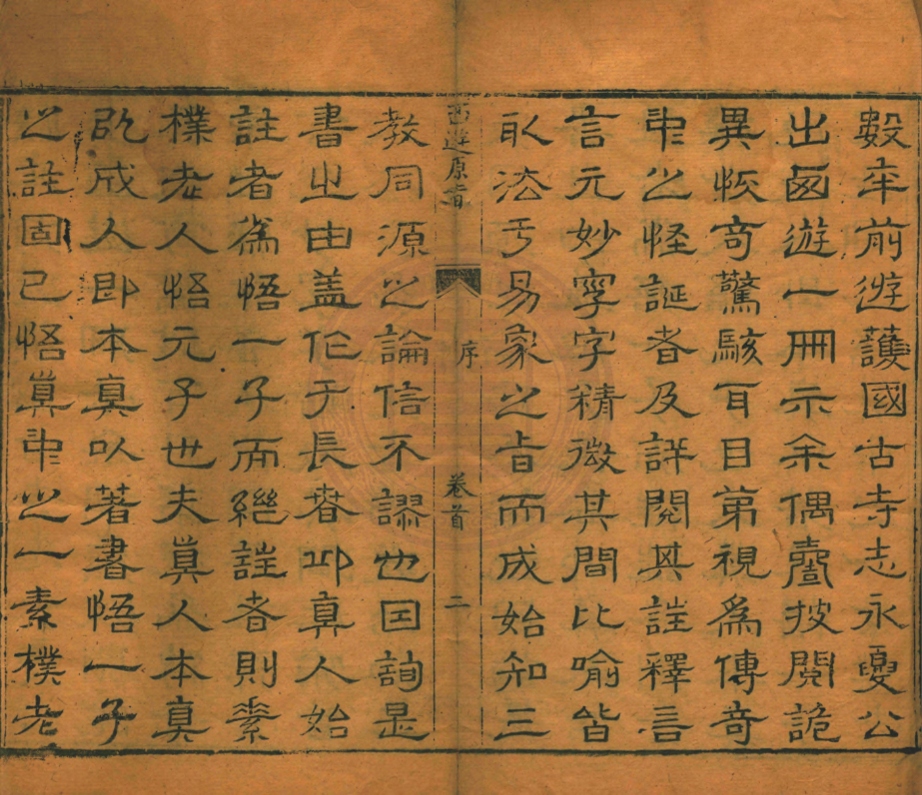 數年前遊護國古寺志永夏公
出西遊一冊示余偶壹披閱詭
異恢奇驚駭耳目第視為傳奇
中之怪誕者及詳閱其註釋言
言元妙字字精微其間比喻皆
取法乎易象之旨而成始知三
西遊原旨 序 卷首 二
教同源之論信不謬也因詢是
書之由蓋作于長春邱真人始
註者為悟一子而繼註者則素
樸老人悟元子也夫真人本真
既成人即本真以著書悟一子
之註固已悟真中之一素樸老